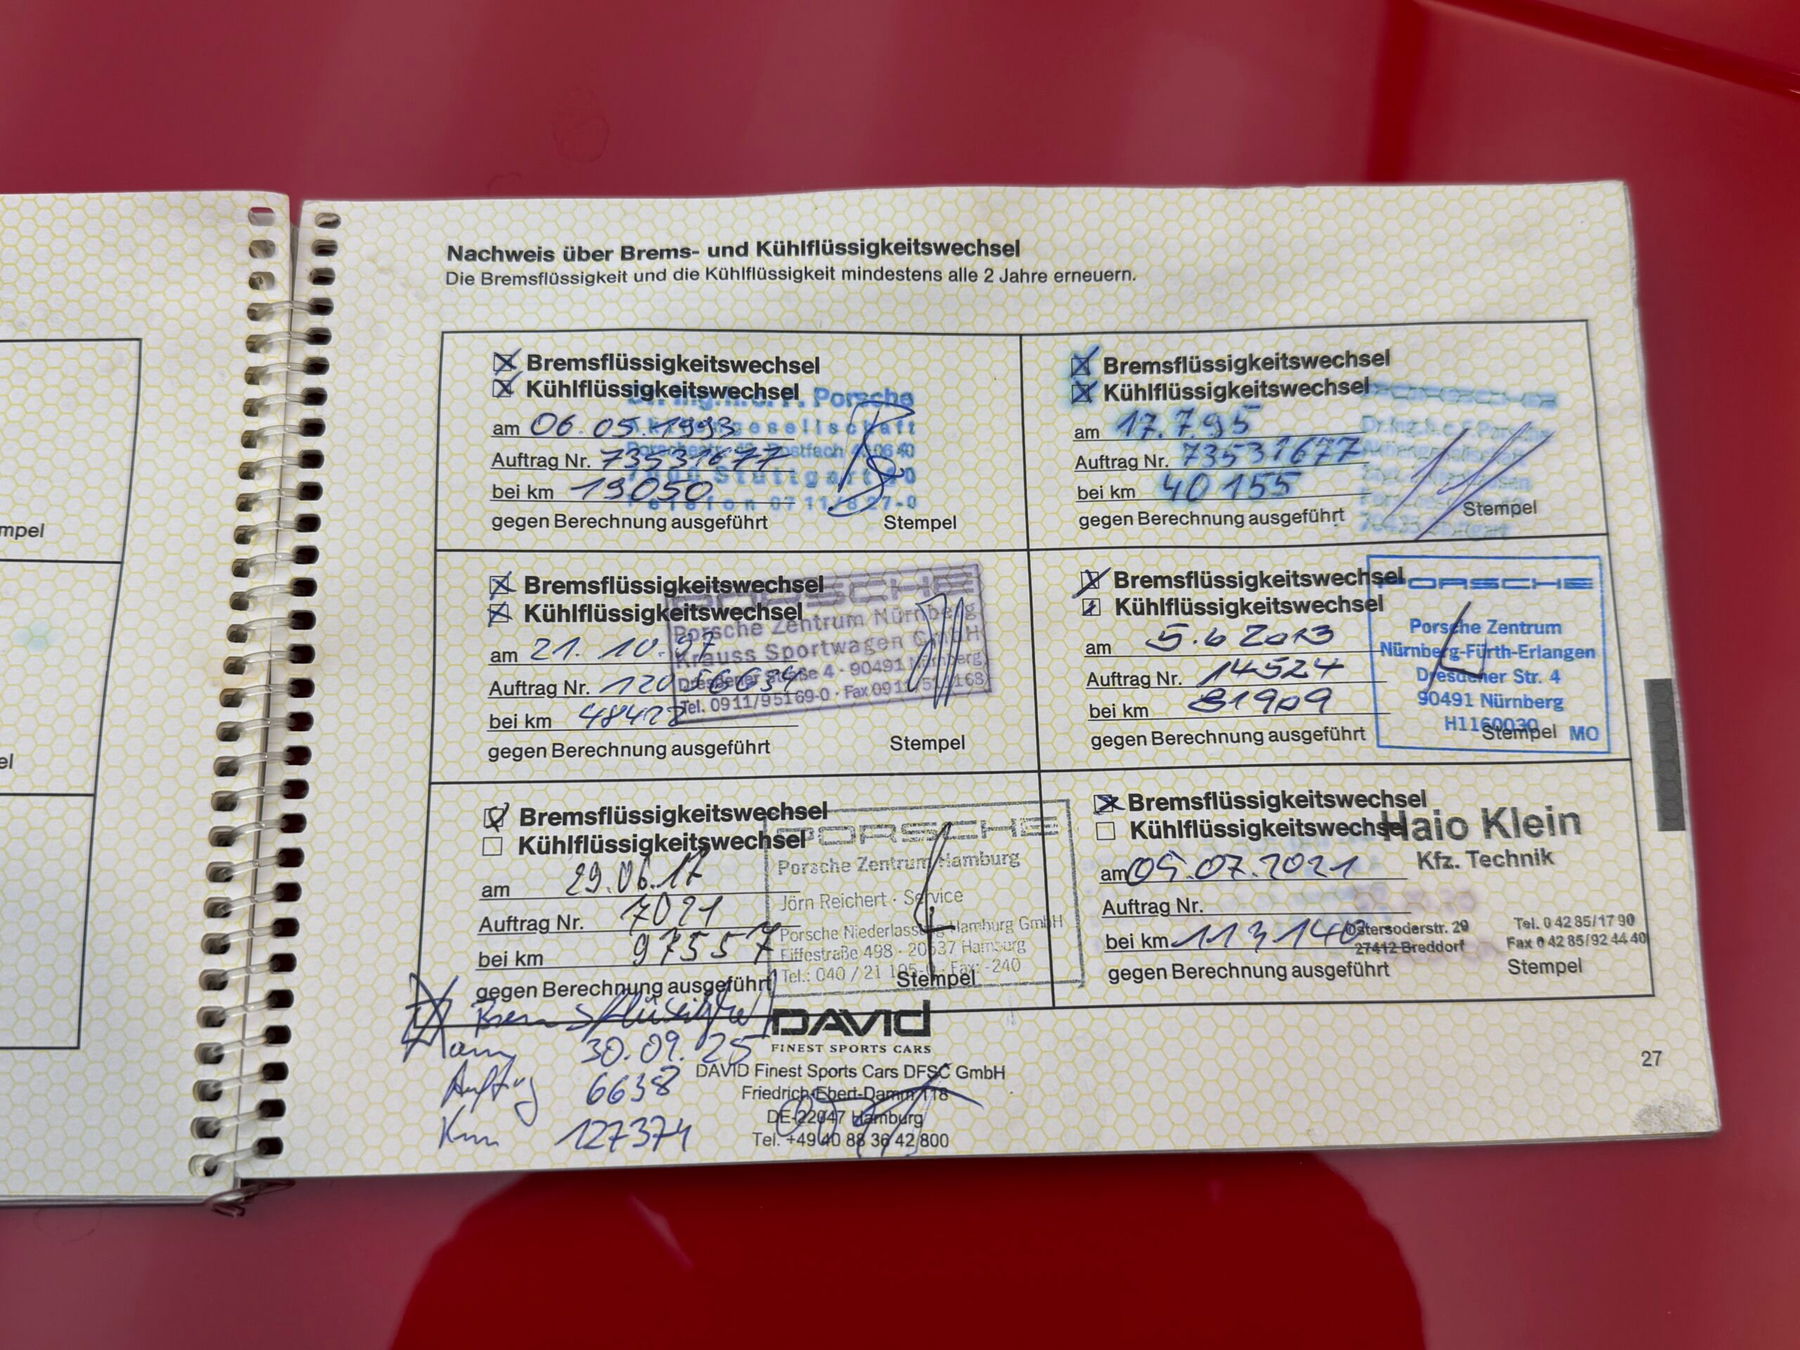 mpel
el
Nachweis über Brems- und Kühlflüssigkeitswechsel
Die Bremsflüssigkeit und die Kühlflüssigkeit mindestens alle 2 Jahre erneuern.
Bremsflüssigkeitswechsel
Kühlflüssigkeitswechsel
Dr. Ing. h.c. F. Porsche
Aktiengesellschaft
am 06.05.1993
Auftrag Nr. 73531677
Stuttgart
bei km 19050
Telefon 07 11/8 27-0
gegen Berechnung ausgeführt
Stempel
Bremsflüssigkeitswechsel
Kühlflüssigkeitswechsel
PORSCHE
Dr. Ing. h.c. F. Porsche
am 17.7.95
Auftrag Nr. 73531677
bei km 40 155
gegen Berechnung ausgeführt
Stempel
Bremsflüssigkeitswechsel
Kühlflüssigkeitswechsel
PORSCHE
Porsche Zentrum Nürnberg
Krauss Sportwagen GmbH
Dresdener Straße 4 · 90491 Nürnberg
Tel. 0911/95169-0 · Fax 0911/
am 21.10.97
Auftrag Nr.
bei km
gegen Berechnung ausgeführt
Stempel
Bremsflüssigkeitswechsel
Kühlflüssigkeitswechsel
PORSCHE
Porsche Zentrum
Nürnberg-Fürth-Erlangen
Dresdener Str. 4
90491 Nürnberg
H1160030
MO
am 5.6 2013
Auftrag Nr. 14524
bei km 81909
gegen Berechnung ausgeführt
Stempel
Bremsflüssigkeitswechsel
Kühlflüssigkeitswechsel
PORSCHE
Porsche Zentrum Hamburg
Jörn Reichert · Service
Porsche Niederlassung Hamburg GmbH
Eiffestraße 498 · 20537 Hamburg
Tel.: 040 / 21 105-0 · Fax: -240
am 29.06.17
Auftrag Nr. 7021
bei km 97557
gegen Berechnung ausgeführt
Stempel
Bremsflüssigkeitswechsel
Kühlflüssigkeitswechsel
Haio Klein
Kfz. Technik
am 05.07.2021
Auftrag Nr.
bei km 113140
Ostersoderstr. 29
27412 Breddorf
Tel. 0 42 85/17 90
Fax 0 42 85/92 44 40
gegen Berechnung ausgeführt
Stempel
am 30.09.25
Auftrag 6638
Km 127374
DAVID
FINEST SPORTS CARS
DAVID Finest Sports Cars DFSC GmbH
Friedrich-Ebert-Damm 118
DE-22047 Hamburg
Tel. +49 40 88 36 42 800
27